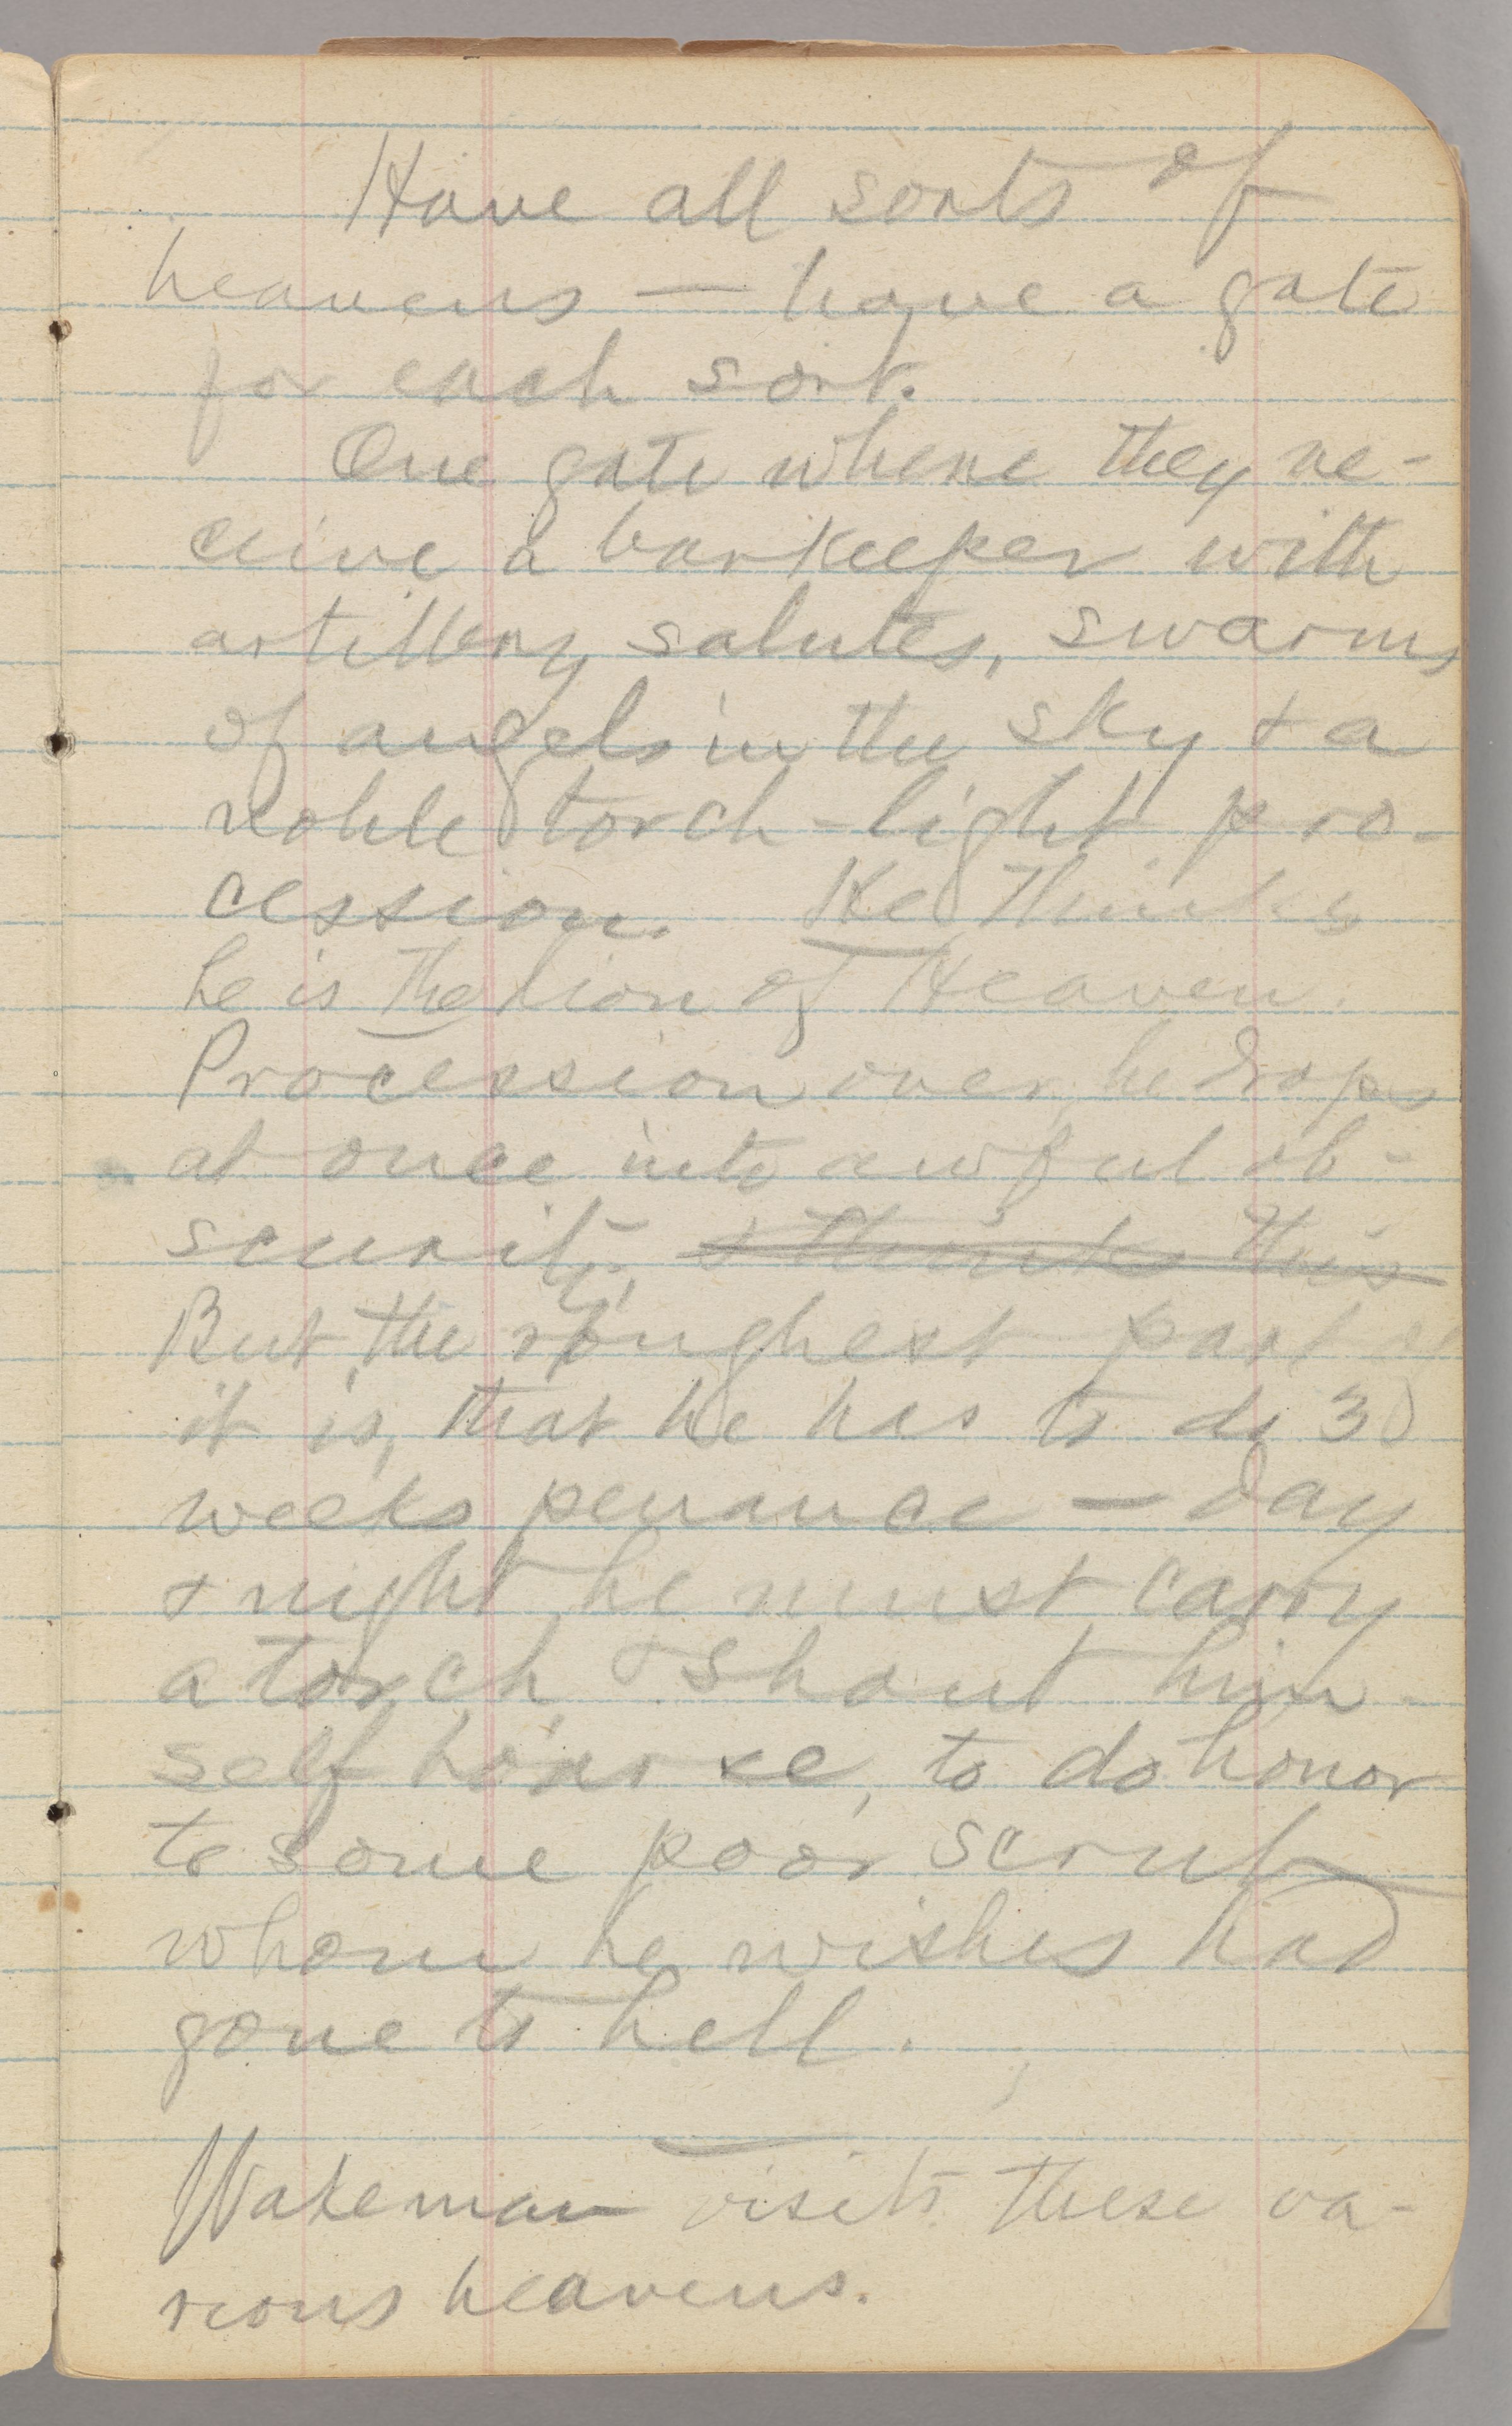 Have all sorts of
heavens — have a gate
for each sort.
One gate where they re-
ceive a barkeeper with
artillery salutes, swarms
of angels in the sky & a
noble torch-light pro-
cession. He thinks
he is the lion of Heaven.
Procession over, he drops
at once into awful ob-
scurity. & thinks this
But the roughest part of
it is, that he has to do 30
weeks penance — day
& night he must carry
a torch & shout him-
self hoarse, to do honor
to some poor scrub
whom he wishes had
gone to hell.
Wakeman visits these va-
rious heavens.